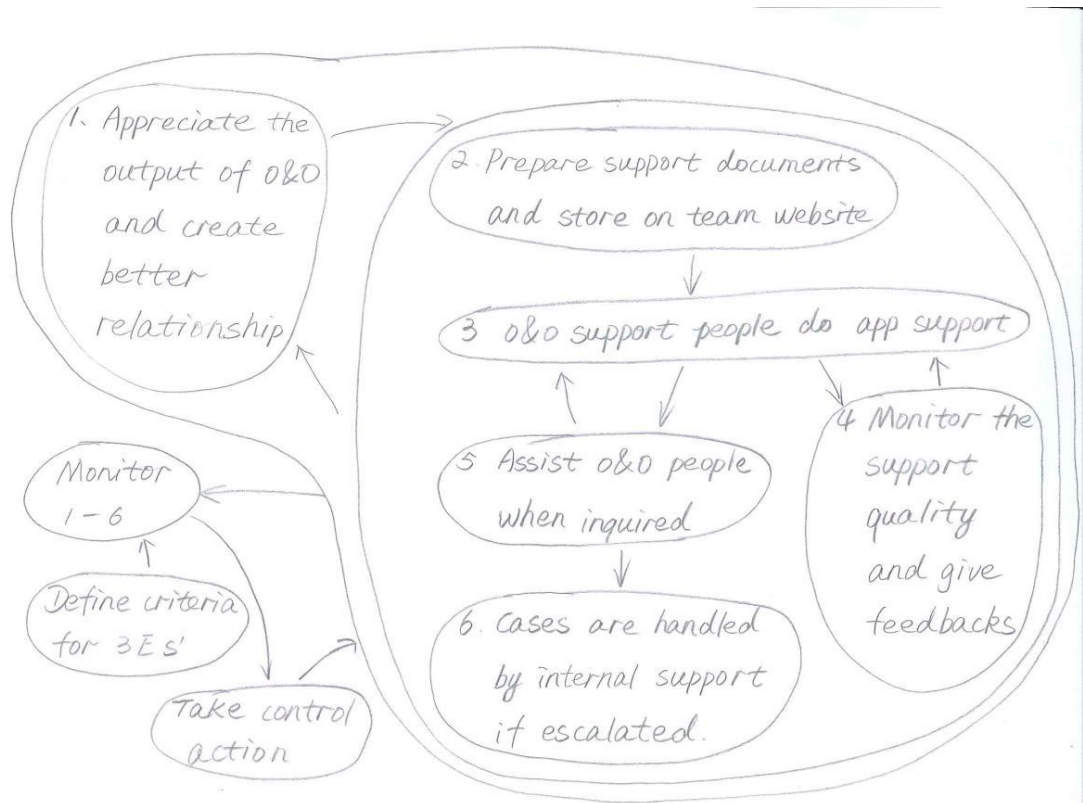 1. Appreciate the
output of O&O
and create
better
relationship
2. Prepare support documents
and store on team website
3 O&O support people do app support
4 Monitor the
support
quality
and give
feedbacks
5 Assist O&O people
when inquired
6. Cases are handled
by internal support
if escalated.
Monitor
1-6
Define criteria
for 3Es'
Take control
action